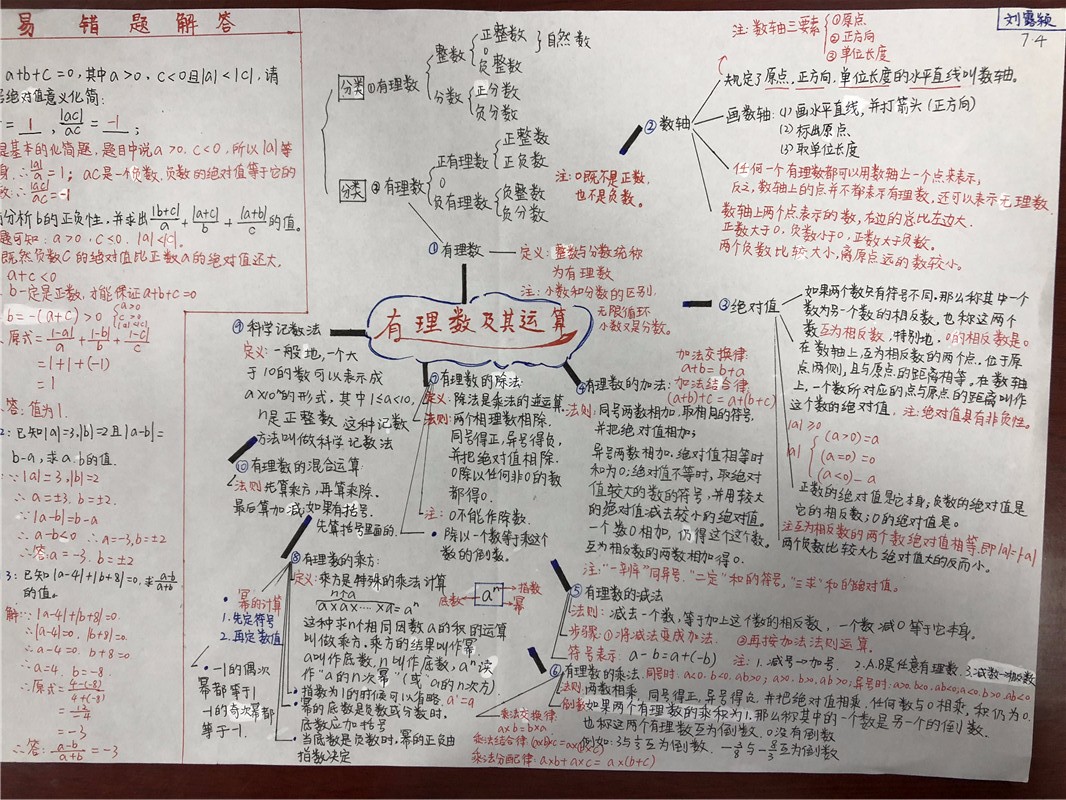 易 错 题 解 答
a+b+c=0,其中a>0,c<0且|a|<|c|,请
绝对值意义化简:
= 1 , |ac|/ac = -1 ;
是基本的化简题,题目中说a>0,c<0,所以|a|等
身,∴|a|/a=1;ac是一个负数,负数的绝对值等于它的
数∴|ac|/ac=-1
分析b的正负性,并求出|b+c|/a+|a+c|/b+|a+b|/c的值。
题可知:a>0,c<0,|a|<|c|。
既然负数c的绝对值比正数a的绝对值还大,
a+c<0
b一定是正数,才能保证a+b+c=0
b=-(a+c)>0
原式=|-a|/a+|-b|/b+|-c|/c
=1+1+(-1)
=1
答:值为1.
2:已知|a|=3,|b|=2且|a-b|=
b-a,求a、b的值.
∵|a|=3,|b|=2
∴a=±3,b=±2.
∵|a-b|=b-a
∴a-b<0 ∴a=-3,b=±2
∴答:a=-3,b=±2
3:已知|a-4|+|b+8|=0,求(a-b)/(a+b)
的值。
解∵|a-4|+|b+8|=0.
∴|a-4|=0,|b+8|=0.
∴a-4=0, b+8=0
∴a=4, b=-8.
∴原式=(4-(-8))/(4+(-8))
=12/-4
=-3
∴答:(a-b)/(a+b)=-3
分类 ①有理数
整数 正整数 0 负整数 }自然数
分数 正分数
负分数
分类 ②有理数
正有理数 正整数
正负数
0
负有理数 负整数
负分数
注:0既不是正数,
也不是负数。
①有理数
定义:整数与分数统称
为有理数
注:小数和分数的区别,
无限循环
小数又是分数。
有理数及其运算
刘露颖
7.4
注:数轴三要素 ①原点
②正方向
③单位长度
②数轴
规定了原点、正方向、单位长度的水平直线叫数轴。
画数轴:(1)画水平直线,并打箭头(正方向)
(2)标出原点
(3)取单位长度
任何一个有理数都可以用数轴上一个点来表示,
反之,数轴上的点并不都表示有理数,还可以表示无理数.
数轴上两个点表示的数,右边的总比左边大.
正数大于0,负数小于0,正数大于负数。
两个负数比较大小,离原点远的数较小。
③绝对值
如果两个数只有符号不同,那么称其中一个
数为另一个数的相反数,也称这两个
数互为相反数,特别地,0的相反数是0
在数轴上,互为相反数的两个点,位于原
点两侧,且与原点的距离相等。在数轴
上,一个数所对应的点与原点的距离叫作
这个数的绝对值. 注:绝对值具有非负性。
|a|≥0
|a| (a>0)=a
(a=0)=0
(a<0)-a
正数的绝对值是它本身;负数的绝对值是
它的相反数;0的绝对值是0。
注互为相反数的两个数绝对值相等,即|a|=|-a|
两个负数比较大小绝对值大的反而小。
④有理数的加法:
加法交换律:
a+b=b+a
加法结合律,
(a+b)+c=a+(b+c)
法则:同号两数相加,取相同的符号,
并把绝对值相加;
异号两数相加,绝对值相等时
和为0;绝对值不等时,取绝对
值较大的数的符号,并用较大
的绝对值减去较小的绝对值。
一个数0相加,仍得这个这个数。
互为相反数的两数相加得0.
注:“一判断”同异号.“二定”和的符号,“三求”和的绝对值。
⑤有理数的减法
法则:减去一个数,等于加上这个数的相反数,一个数减0等于它本身。
步骤:①将减法变成加法. ②再按加法法则运算.
符号表示 a-b=a+(-b) 注:1.减号→加号. 2.A.B是任意有理数. 3.减数→相反数
⑥有理数的乘法:同号时:a<0.b<0.ab>0;a>0.b>0.ab>0;异号时:a>0.b<0.ab<0,a<0.b>0.ab<0
法则:两数相乘,同号得正,异号得负,并把绝对值相乘,任何数与0相乘,积仍为0.
倒数:如果两个有理数的乘积为1,那么称其中的一个数是另一个的倒数.
也称这两个有理数互为倒数.0没有倒数
乘法交换律:
a×b=b×a
乘法结合律:(a×b)×c=a×(b×c)
乘法分配律:a×b+a×c=a×(b+c)
⑦有理数的除法:
定义:除法是乘法的逆运算.
法则:两个相理数相除.
同号得正,异号得负,
并把绝对值相除.
0除以任何非0的数
都得0.
注:0不能作除数.
除以一个数等于乘这个
数的倒数。
⑧有理数的乘方:
定义:乘方是特殊的乘法计算
n个a
a×a×…×a=aⁿ
底数 aⁿ 指数
幂
这种求n个相同因数a的积的运算
叫做乘方,乘方的结果叫作幂.
a叫作底数,n叫作底数,aⁿ读
作“a的n次幂”(或“a的n次方)
指数为1的时候可以省略,a¹=a
幂的底数是负数或分数时.
底数应加括号
当底数是负数时.幂的正负由
指数决定
幂的计算
1.先定符号
2.再定数值
-1的偶次
幂都等于1
-1的奇次幂都
等于-1.
⑨科学记数法
定义:一般地,一个大
于10的数可以表示成
a×10ⁿ的形式,其中1≤a<10,
n是正整数 这种记数
方法叫做科学记数法
⑩有理数的混合运算:
法则先算乘方,再算乘除.
最后算加减,如果有括号.
先算括号里面的.